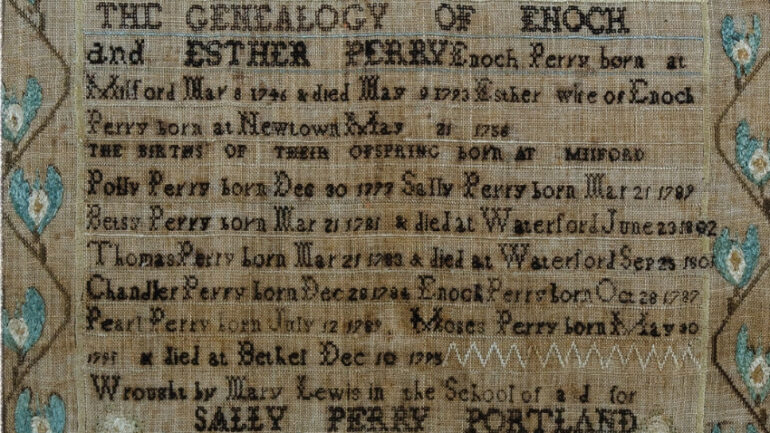 THE GENEALOGY OF ENOCH
and ESTHER PERRY Enoch Perry born at
Milford Mar 8 1746 & died May 9 1793 Esther wife of Enoch
Perry born at Newtown May 21 1756
THE BIRTHS OF THEIR OFSPRING BORN AT MILFORD
Polly Perry born Dec 30 1777 Sally Perry born Mar 21
Betsy Perry born Mar 21 1781 & died at Waterford June 23 1802
Thomas Perry born Mar 21 1783 & died at Waterford Sep 1801
Chandler Perry born Dec 28 1784 Enoch Perry born Oct 28 1787
Pearl Perry born July 12 1789 Moses Perry born May 30
& died at Bethel Dec 10 1795
Wrought by Mary Lewis in the School of a d for
SALLY PERRY PORTLAND